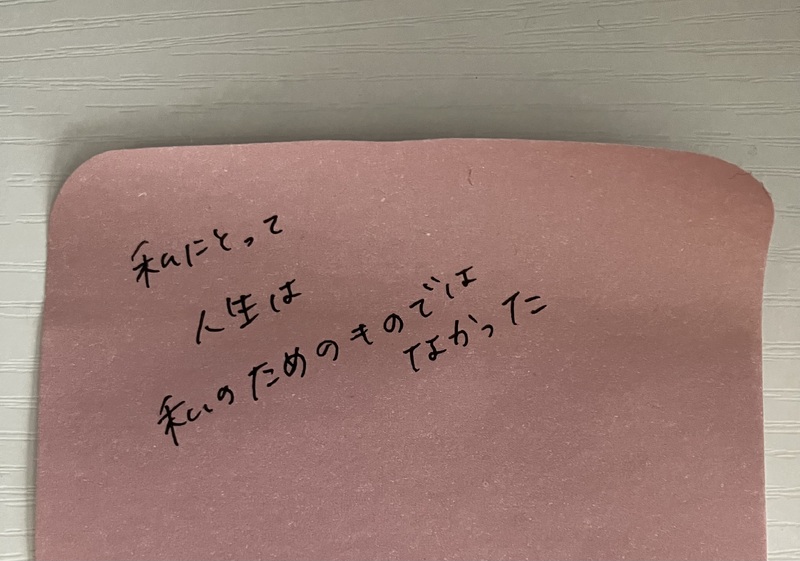 私にとって
人生は
私のためのものでは
なかった